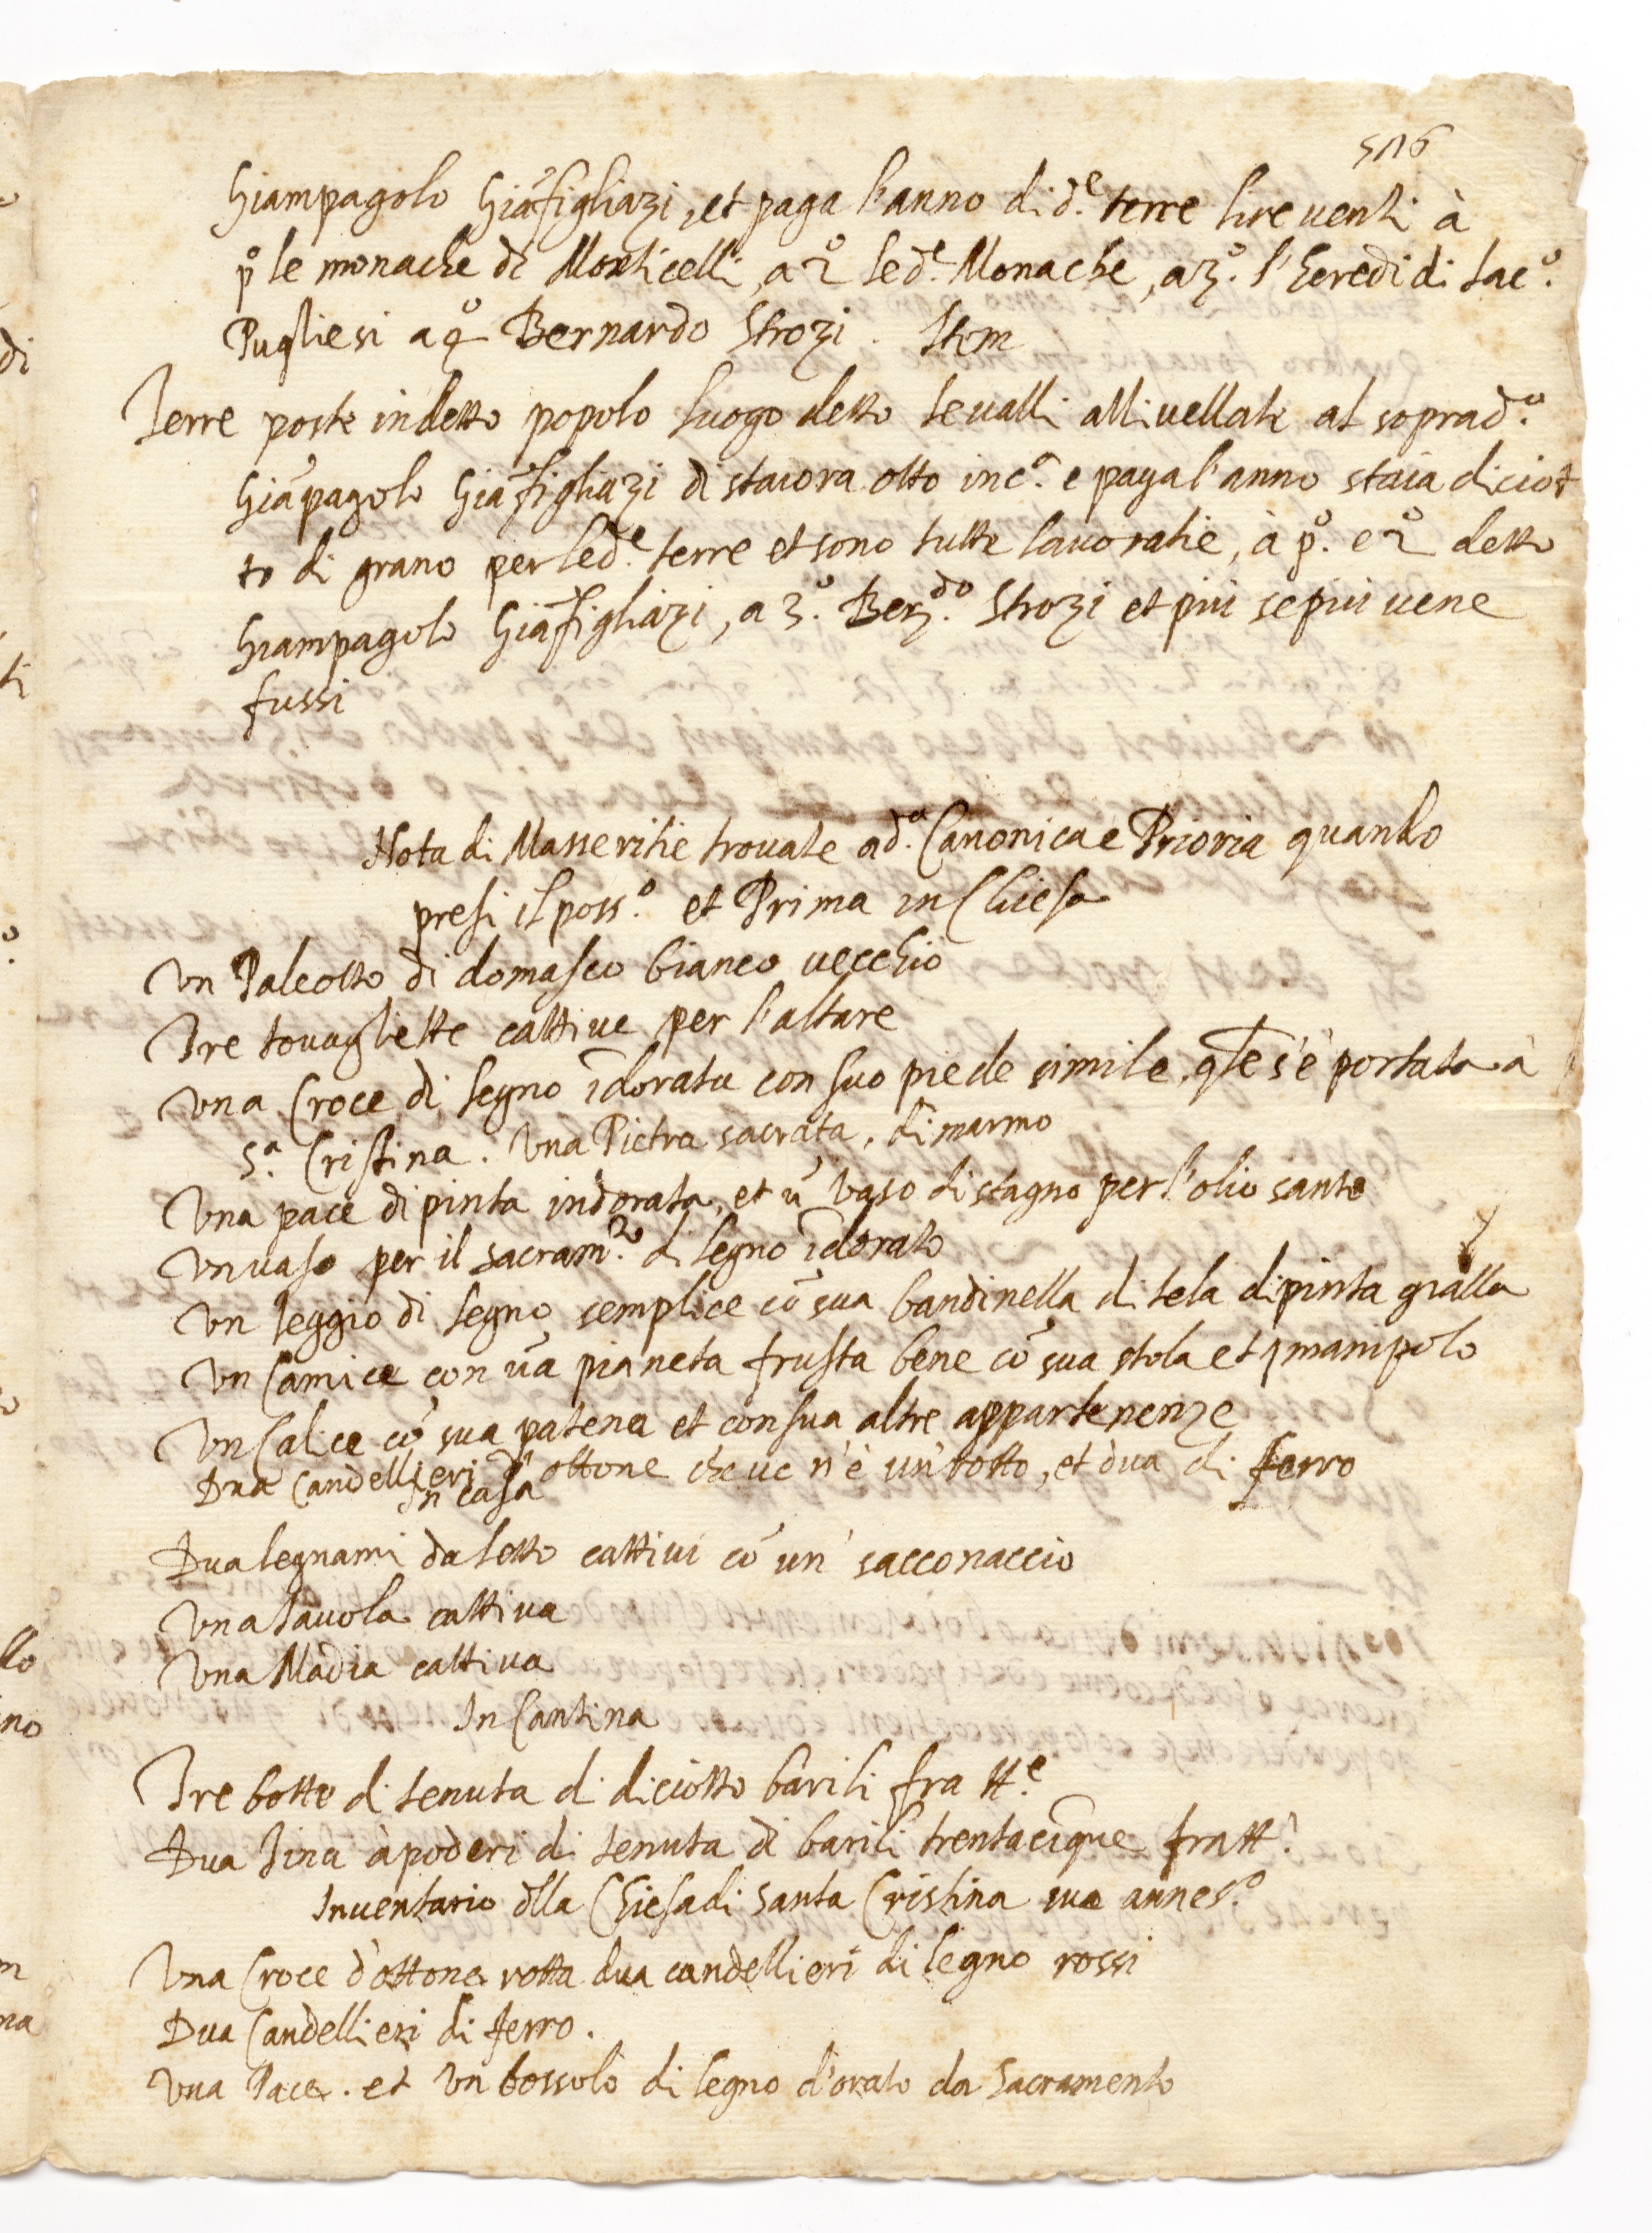 Giampagolo Giāfigliazi, et paga l'anno di d.e terre lire venti à
po le monache di Monticelli, a 2o le d.e Monache, a 3o. l'heredi di Iac.o
Pugliesi a 4o Bernardo Strozi. Item
Terre poste in detto popolo luogo detto le valli allivellate al soprad.o
Giāpagolo Giāfigliazi di staiora otto inc.a e paga l'anno staia diciot
to di grano per le d.e terre et sono tutte lavoratie, à po. e 2o detto
Giampagolo Giāfigliazi, a 3o. Ber.do Strozi et più se più vene
fussi
Nota di Masseritie trovate a d.a Canonica e Prioria quando
presi il poss.o et Prima in Chiesa
Un Paleotto di domasco bianco vecchio
Tre tovagliette cattive per l'altare
Una Croce di legno īdorata con suo piede simile, q̄le s'è portata à
S.a Cristina. Una Pietra sacrata, di marmo
Una pace dipinta indorata, et ū vaso di stagno per l'olio santo
Un vaso per il sacram.to di legno īdorato
Un leggio di legno semplice cō sua bandinella di tela dipinta gialla
Un Camice con ūa pianeta frusta bene cō sua stola et manipolo
Un Calice cō sua patena et con sua altre appartenenze
Dua Candellieri d'ottone che ve n'è un rotto, et dua di ferro
In casa
Dua legnami da letto cattivi cō un' sacconaccio
Una tavola cattiva
Una Madia cattiva
In Cantina
Tre botte di tenuta di diciotto barili fra tt.e
Dua Tina à poderi di tenuta di barili trentacīque fra tt.i
Inventario dlla Chiesa di Santa Cristina sua annes.o
Una Croce d'ottone rotta dua candellieri di legno rossi
Dua Candellieri di ferro.
Una Pace. et Un bossolo di legno d'orato da Sacramento